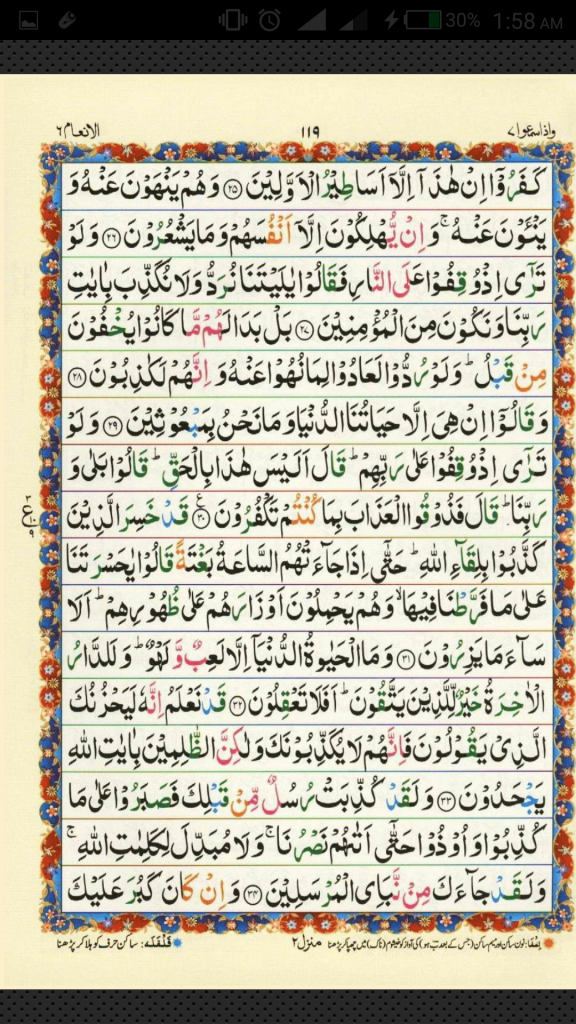 30% 1:58 AM
واذاسمعوا۷ ۱۱۹ الانعام۶
كَفَرُوْۤا اِنْ هٰذَاۤ اِلَّاۤ اَسَاطِیْرُ الْاَوَّلِیْنَ ﴿۲۵﴾ وَهُمْ یَنْهَوْنَ عَنْهُ وَ
یَنْـَٔوْنَ عَنْهُ ۚ وَاِنْ یُّهْلِكُوْنَ اِلَّاۤ اَنْفُسَهُمْ وَمَا یَشْعُرُوْنَ ﴿۲۶﴾ وَلَوْ
تَرٰۤی اِذْ وُقِفُوْا عَلَی النَّارِ فَقَالُوْا یٰلَیْتَنَا نُرَدُّ وَلَا نُكَذِّبَ بِاٰیٰتِ
رَبِّنَا وَنَكُوْنَ مِنَ الْمُؤْمِنِیْنَ ﴿۲۷﴾ بَلْ بَدَا لَهُمْ مَّا كَانُوْا یُخْفُوْنَ
مِنْ قَبْلُ ؕ وَلَوْ رُدُّوْا لَعَادُوْا لِمَا نُهُوْا عَنْهُ وَ اِنَّهُمْ لَكٰذِبُوْنَ ﴿۲۸﴾
وَقَالُوْۤا اِنْ هِیَ اِلَّا حَیَاتُنَا الدُّنْیَا وَمَا نَحْنُ بِمَبْعُوْثِیْنَ ﴿۲۹﴾ وَلَوْ
تَرٰۤی اِذْ وُقِفُوْا عَلٰی رَبِّهِمْ ؕ قَالَ اَلَیْسَ هٰذَا بِالْحَقِّ ؕ قَالُوْا بَلٰی وَ
رَبِّنَا ؕ قَالَ فَذُوْقُوا الْعَذَابَ بِمَا كُنْتُمْ تَكْفُرُوْنَ ﴿۳۰﴾ ع قَدْ خَسِرَ الَّذِیْنَ
۳ ع ۱۰ ۹
كَذَّبُوْا بِلِقَآءِ اللهِ ؕ حَتّٰۤی اِذَا جَآءَتْهُمُ السَّاعَةُ بَغْتَةً قَالُوْا یٰحَسْرَتَنَا
عَلٰی مَا فَرَّطْنَا فِیْهَا ۙ وَهُمْ یَحْمِلُوْنَ اَوْزَارَهُمْ عَلٰی ظُهُوْرِهِمْ ؕ اَلَا
سَآءَ مَا یَزِرُوْنَ ﴿۳۱﴾ وَمَا الْحَیٰوةُ الدُّنْیَاۤ اِلَّا لَعِبٌ وَّلَهْوٌ ؕ وَلَلدَّارُ
الْاٰخِرَةُ خَیْرٌ لِّلَّذِیْنَ یَتَّقُوْنَ ؕ اَفَلَا تَعْقِلُوْنَ ﴿۳۲﴾ قَدْ نَعْلَمُ اِنَّهٗ لَیَحْزُنُكَ
الَّذِیْ یَقُوْلُوْنَ فَاِنَّهُمْ لَا یُكَذِّبُوْنَكَ وَلٰكِنَّ الظّٰلِمِیْنَ بِاٰیٰتِ اللهِ
یَجْحَدُوْنَ ﴿۳۳﴾ وَلَقَدْ كُذِّبَتْ رُسُلٌ مِّنْ قَبْلِكَ فَصَبَرُوْا عَلٰی مَا
كُذِّبُوْا وَاُوْذُوْا حَتّٰۤی اَتٰىهُمْ نَصْرُنَا ۚ وَلَا مُبَدِّلَ لِكَلِمٰتِ اللهِ ۚ
وَلَقَدْ جَآءَكَ مِنْ نَّبَاِی الْمُرْسَلِیْنَ ﴿۳۴﴾ وَاِنْ كَانَ كَبُرَ عَلَیْكَ
اِخفا: نون ساکن اور میم ساکن (جس کے بعد ب ہو) کی آواز کو خیشوم (ناک) میں چھپا کر پڑھنا منزل۲ قلقلہ: ساکن حرف کو ہلا کر پڑھنا